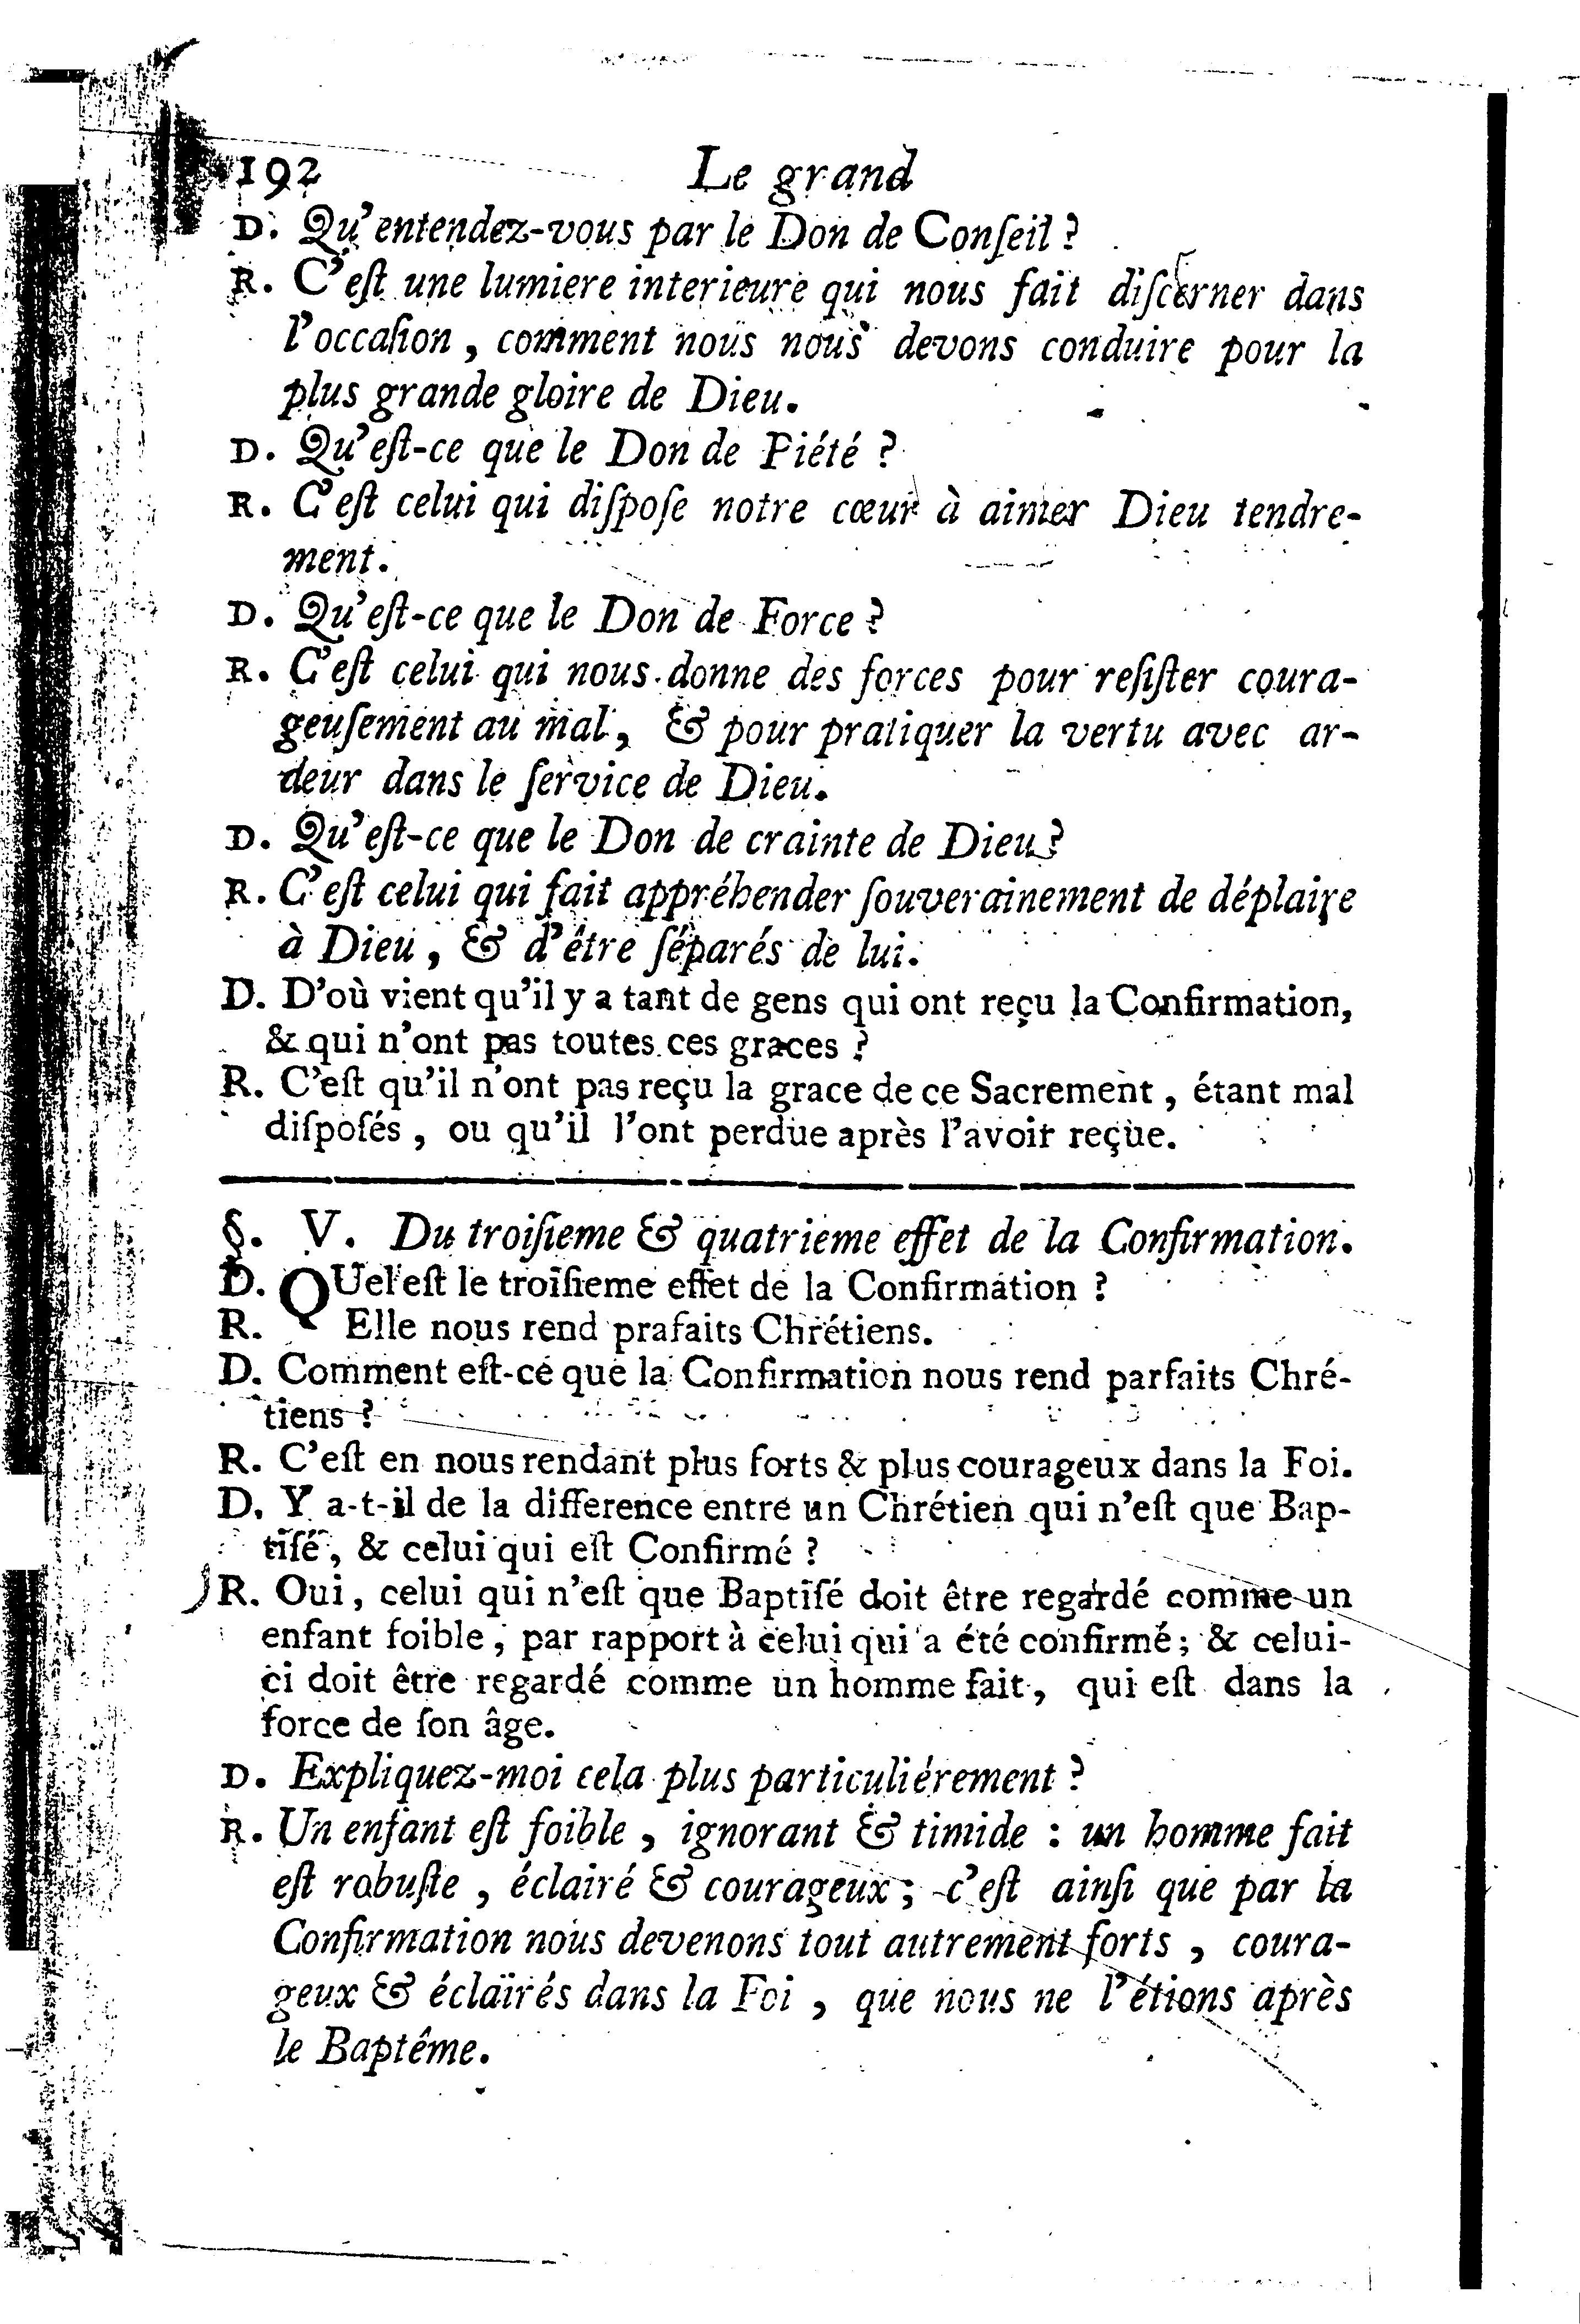 192 Le grand
D. Qu'entendez-vous par le Don de Conſeil ?
R. C'eſt une lumiere interieure qui nous fait diſcerner dans
l'occaſion, comment nous nous devons conduire pour la
plus grande gloire de Dieu.
D. Qu'eſt-ce que le Don de Piété ?
R. C'eſt celui qui diſpoſe notre cœur à aimer Dieu tendre-
ment.
D. Qu'eſt-ce que le Don de Force ?
R. C'eſt celui qui nous donne des forces pour reſiſter coura-
geuſement au mal, & pour pratiquer la vertu avec ar-
deur dans le ſervice de Dieu.
D. Qu'eſt-ce que le Don de crainte de Dieu ?
R. C'eſt celui qui fait appréhender ſouverainement de déplaire
à Dieu, & d'être ſéparés de lui.
D. D'où vient qu'il y a tant de gens qui ont reçu la Confirmation,
& qui n'ont pas toutes ces graces ?
R. C'eſt qu'il n'ont pas reçu la grace de ce Sacrement, étant mal
diſpoſés, ou qu'il l'ont perdüe après l'avoir reçüe.
§. V. Du troiſieme & quatrieme effet de la Confirmation.
D. QUel eſt le troiſieme effet de la Confirmation ?
R. Elle nous rend prafaits Chrétiens.
D. Comment eſt-ce que la Confirmation nous rend parfaits Chré-
tiens ?
R. C'eſt en nous rendant plus forts & plus courageux dans la Foi.
D. Y a-t-il de la difference entre un Chrétien qui n'eſt que Bap-
tiſé, & celui qui eſt Confirmé ?
R. Oui, celui qui n'eſt que Baptiſé doit être regardé comme un
enfant foible, par rapport à celui qui a été confirmé; & celui-
ci doit être regardé comme un homme fait, qui eſt dans la
force de ſon âge.
D. Expliquez-moi cela plus particuliérement ?
R. Un enfant eſt foible, ignorant & timide : un homme fait
eſt robuſte, éclairé & courageux; c'eſt ainſi que par la
Confirmation nous devenons tout autrement forts, coura-
geux & éclairés dans la Foi, que nous ne l'étions après
le Baptême.